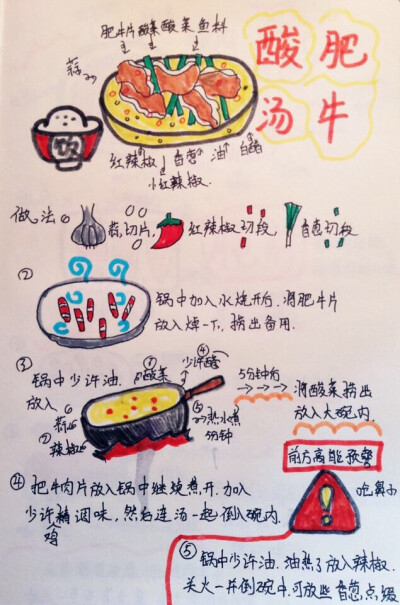 肥牛片 酸菜 酸菜鱼料
蒜
酸肥
汤牛
饮
红辣椒 香葱 油 白醋
小红辣椒.
做法①
蒜,切片, 红辣椒切段, 香葱切段
②
锅中加入水烧开后,将肥牛片
放入焯一下,捞出备用.
③
锅中少许油.
放入.
①酸菜
④少许醋
③蒜
②辣椒
⑤热水煮
5分钟
5分钟有
将酸菜捞出
放入大碗内.
前方高能预警
④ 把牛肉片放入锅中继续煮开.加入
少许鸡精调味,然后连汤一起倒入碗内.
⑤ 锅中少许油.油热了放入辣椒.
关火一并倒碗中.可放些香葱点缀